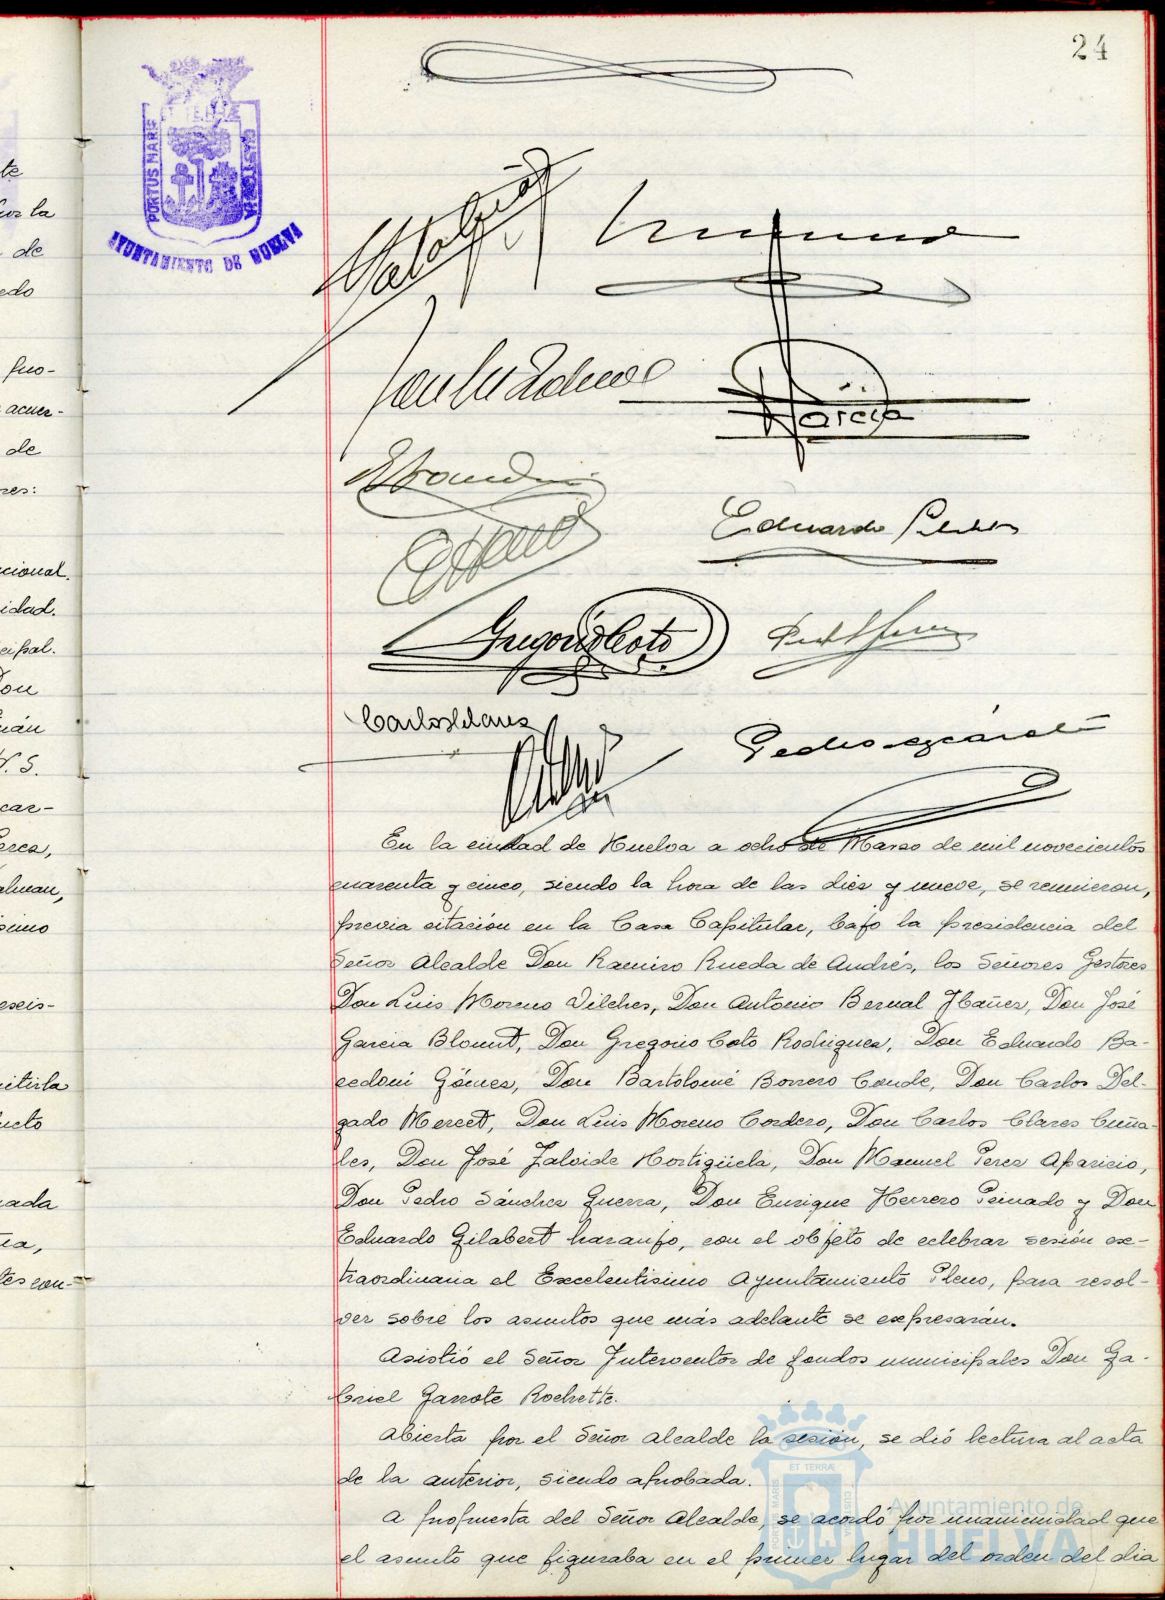 24
PORTUS MARIS
ET TERRAE
CUSTODIA
AYUNTAMIENTO DE HUELVA
te
por la
de
edo
fuo-
acuer-
de
res:
cional.
idad.
cipal.
Don
uán
V. S.
car-
Perez,
simo
eseis-
mitirla
ucto
nada
ria,
tes con-
García
Eduardo
Gregorio Coto
Carlos Clares
Pedro
En la ciudad de Huelva a ocho de Marzo de mil novecientos
cuarenta y cinco, siendo la hora de las diez y nueve, se reunieron,
previa citación en la Casa Capitular, bajo la presidencia del
Señor Alcalde Don Ramiro Rueda de Andrés, los Señores Gestores
Don Luis Moreno Vilches, Don Antonio Bernal Ibañez, Don José
Garcia Blount, Don Gregorio Coto Rodriguez, Don Eduardo Ba-
cedoni Gómez, Don Bartolomé Borrero Conde, Don Carlos Del-
gado Mercet, Don Luis Moreno Cordero, Don Carlos Clares Cuña-
les, Don José Zalvide Hortigüela, Don Manuel Perez Aparicio,
Don Pedro Sánchez Guerra, Don Enrique Herrero Peinado y Don
Eduardo Gilabert Naranjo, con el objeto de celebrar sesión ex-
traordinaria el Excelentisimo Ayuntamiento Pleno, para resol-
ver sobre los asuntos que más adelante se expresarán.
Asistió el Señor Interventor de fondos municipales Don Ga-
briel Garrote Rochette.
Abierta por el Señor Alcalde la sesión, se dió lectura al acta
de la anterior, siendo aprobada.
A propuesta del Señor Alcalde, se acordó por unanimidad que
el asunto que figuraba en el primer lugar del orden del dia
ET TERRAE
PORTUS MARIS
CUSTODIA
Ayuntamiento de
HUELVA